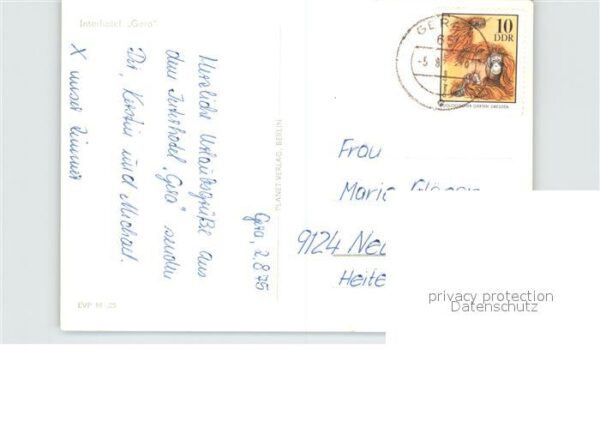 Interhotel „Gera"
Gera, 2.8.75
Herzliche Urlaubsgrüße aus
dem Interhotel „Gera" senden
Dir, Kerstin und Michael.
X unser Zimmer
EVP M -,25
PLANET-VERLAG, BERLIN
GERA
65
-5.8.
10
DDR
ZOOLOGISCHER GARTEN DRESDEN
Frau
9124 Neu
Heite
privacy protection
Datenschutz